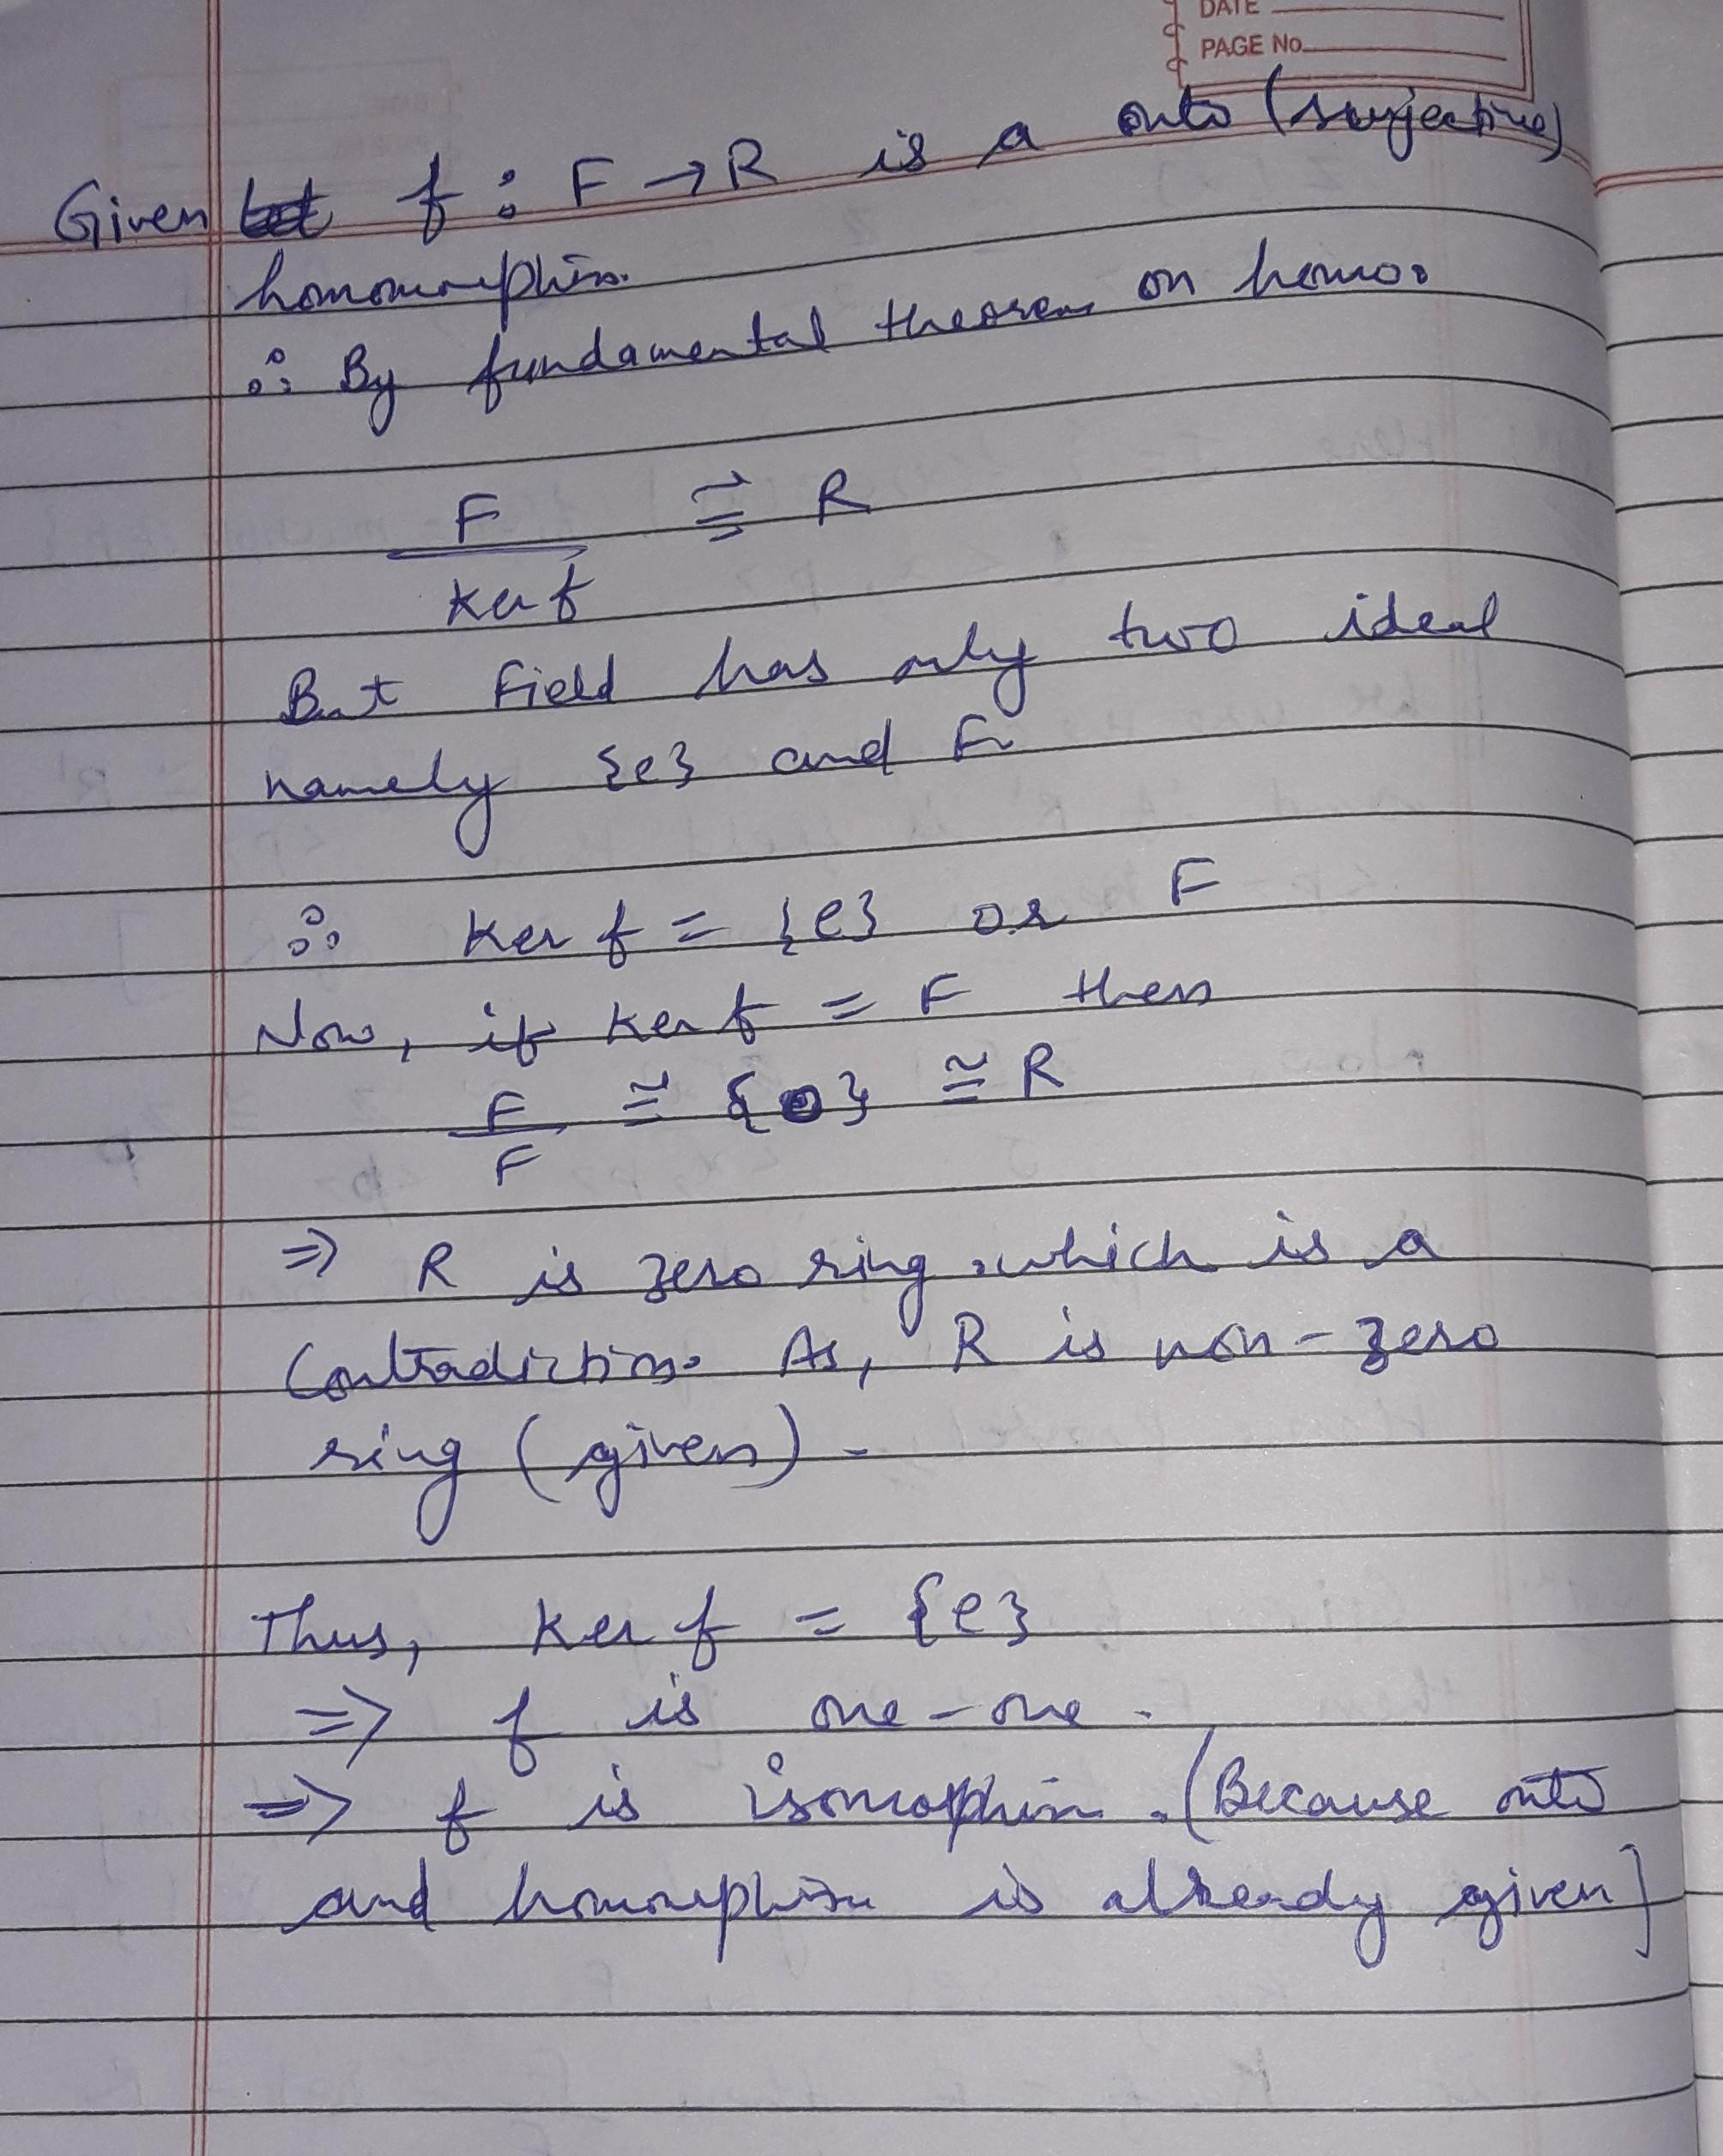 DATE
PAGE No.
Given f : F → R is a onto (surjective)
homomorphism.
∴ By fundamental theorem on homo.
F/ker f ≅ R
But field has only two ideal
namely {e} and F.
∴ ker f = {e} or F
Now, if ker f = F then
F/F ≅ {0} ≅ R
⇒ R is zero ring, which is a
Contradiction. As, R is non-zero
ring (given).
Thus, ker f = {e}
⇒ f is one-one.
⇒ f is isomorphism. (Because onto
and homomorphism is already given]